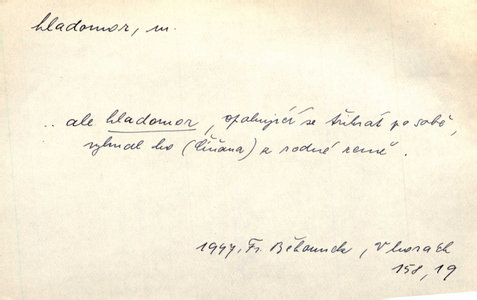 hladomor, m.
.. ale hladomor, opakující se třikrát po sobě,
vyhnal ho (Číňana) z rodné země.
1947, Fr. Běhounek, V horách
158, 19